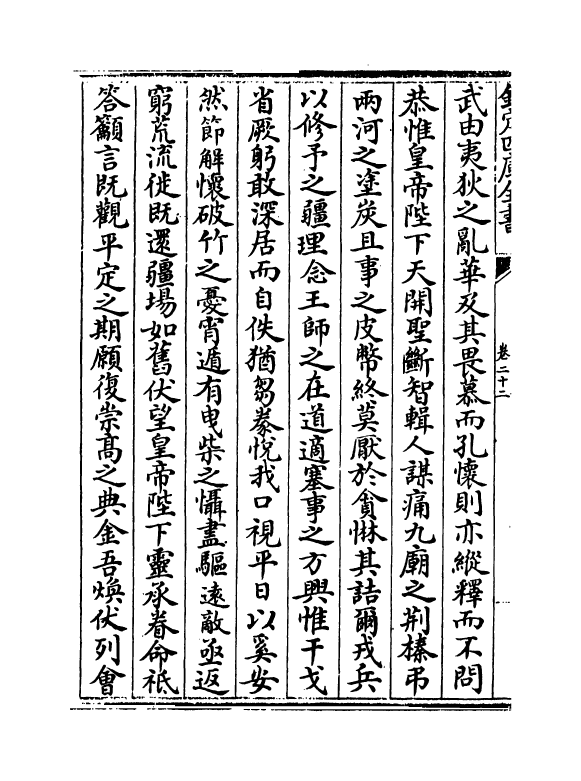 欽定四庫全書
卷二十二
武由夷狄之亂華及其畏慕而孔懷則亦縱釋而不問
恭惟皇帝陛下天開聖斷智輯人謀痛九廟之荆榛弔
兩河之塗炭且事之皮幣終莫厭於貪惏其詰爾戎兵
以修予之疆理念王師之在道適塞事之方興惟干戈
省厥躬敢深居而自佚猶芻豢悅我口視平日以奚安
然節解懷破竹之憂宵遁有曳柴之懾盡驅逺敵亟返
窮荒流徙既還疆場如舊伏望皇帝陛下靈承眷命祇
答籲言既觀平定之期願復崇髙之典金吾煥伏列會